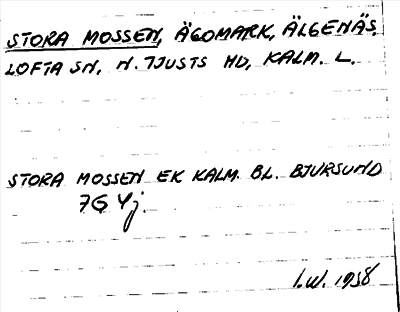 STORA MOSSEN, ÄGOMARK, ÄLGENÄS,
LOFTA SN, N. TJUSTS HD, KALM. L.
STORA MOSSEN EK KALM. BL. BJURSUND
7G 4j.
I.W. 1958